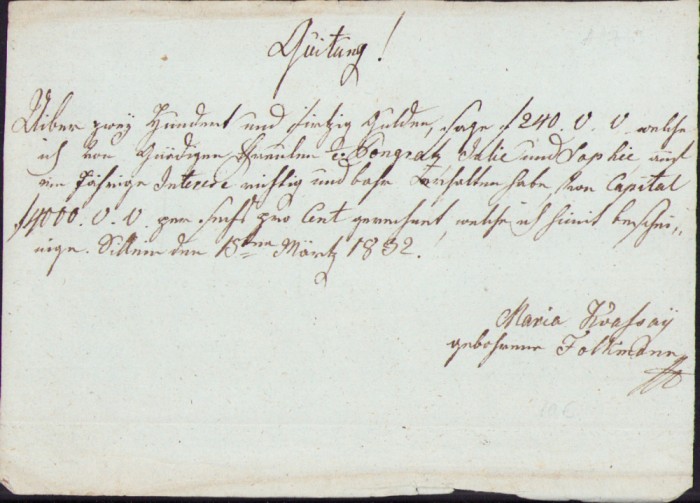 Quitung!
Uiber zwey Hundert und vierzig Gulden, sage f 240. V. V. welche
ich von Gnädigen Freulen v Pongratz Julie und Sophie auf
ein Jährige Interese richtig und bahr Erhalten habe von Capital
f 4000. V. V. per sechs pro Cent gerechnet, welche ich himit beschei„
nige. Sillein den 15ten Märtz 1832.
Maria Kvassaÿ
gebohrene Folkmann